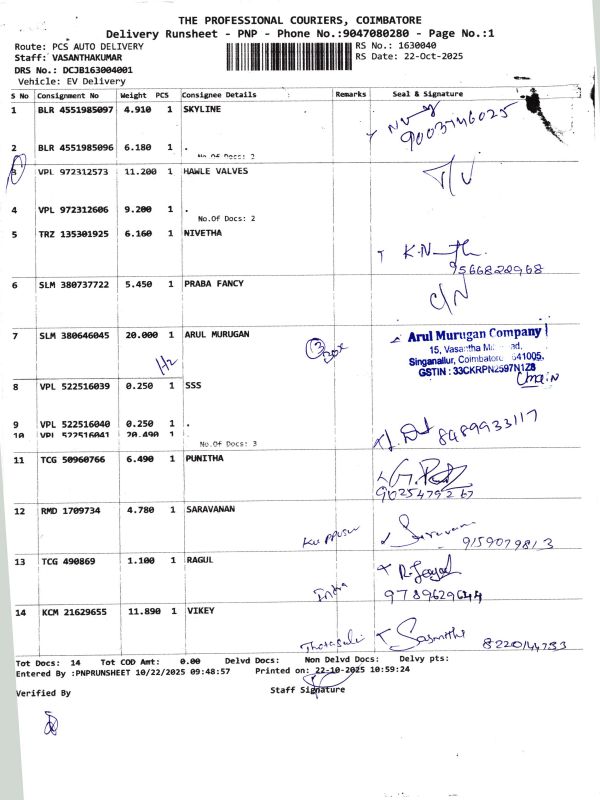 THE PROFESSIONAL COURIERS, COIMBATORE
Delivery Runsheet - PNP - Phone No.:9047080280 - Page No.:1
Route: PCS AUTO DELIVERY RS No.: 1630040
Staff: VASANTHAKUMAR RS Date: 22-Oct-2025
DRS No.: DCJB163004001
Vehicle: EV Delivery
S No Consignment No Weight PCS Consignee Details Remarks Seal & Signature
1 BLR 4551985097 4.910 1 SKYLINE
9003746025
2 BLR 4551985096 6.180 1 .
No.Of Docs: 2
3 VPL 972312573 11.200 1 HAWLE VALVES
4 VPL 972312606 9.200 1 .
No.Of Docs: 2
5 TRZ 135301925 6.160 1 NIVETHA
9566822968
6 SLM 380737722 5.450 1 PRABA FANCY
C/N
7 SLM 380646045 20.000 1 ARUL MURUGAN 3 Box Arul Murugan Company
15, Vasantha
Singanallur, Coimbatore 641005.
GSTIN : 33CKRPN2597N1Z8
8 VPL 522516039 0.250 1 SSS
9 VPL 522516040 0.250 1 .
10 VPL 522516041 20.490 1 8489933117
No.Of Docs: 3
11 TCG 50960766 6.490 1 PUNITHA
9025479267
12 RMD 1709734 4.780 1 SARAVANAN
Saravanan 9159079813
13 TCG 490869 1.100 1 RAGUL
9789629644
14 KCM 21629655 11.890 1 VIKEY
Sasmitha 8220144733
Tot Docs: 14 Tot COD Amt: 0.00 Delvd Docs: Non Delvd Docs: Delvy pts:
Entered By :PNPRUNSHEET 10/22/2025 09:48:57 Printed on: 22-10-2025 10:59:24
Verified By Staff Signature